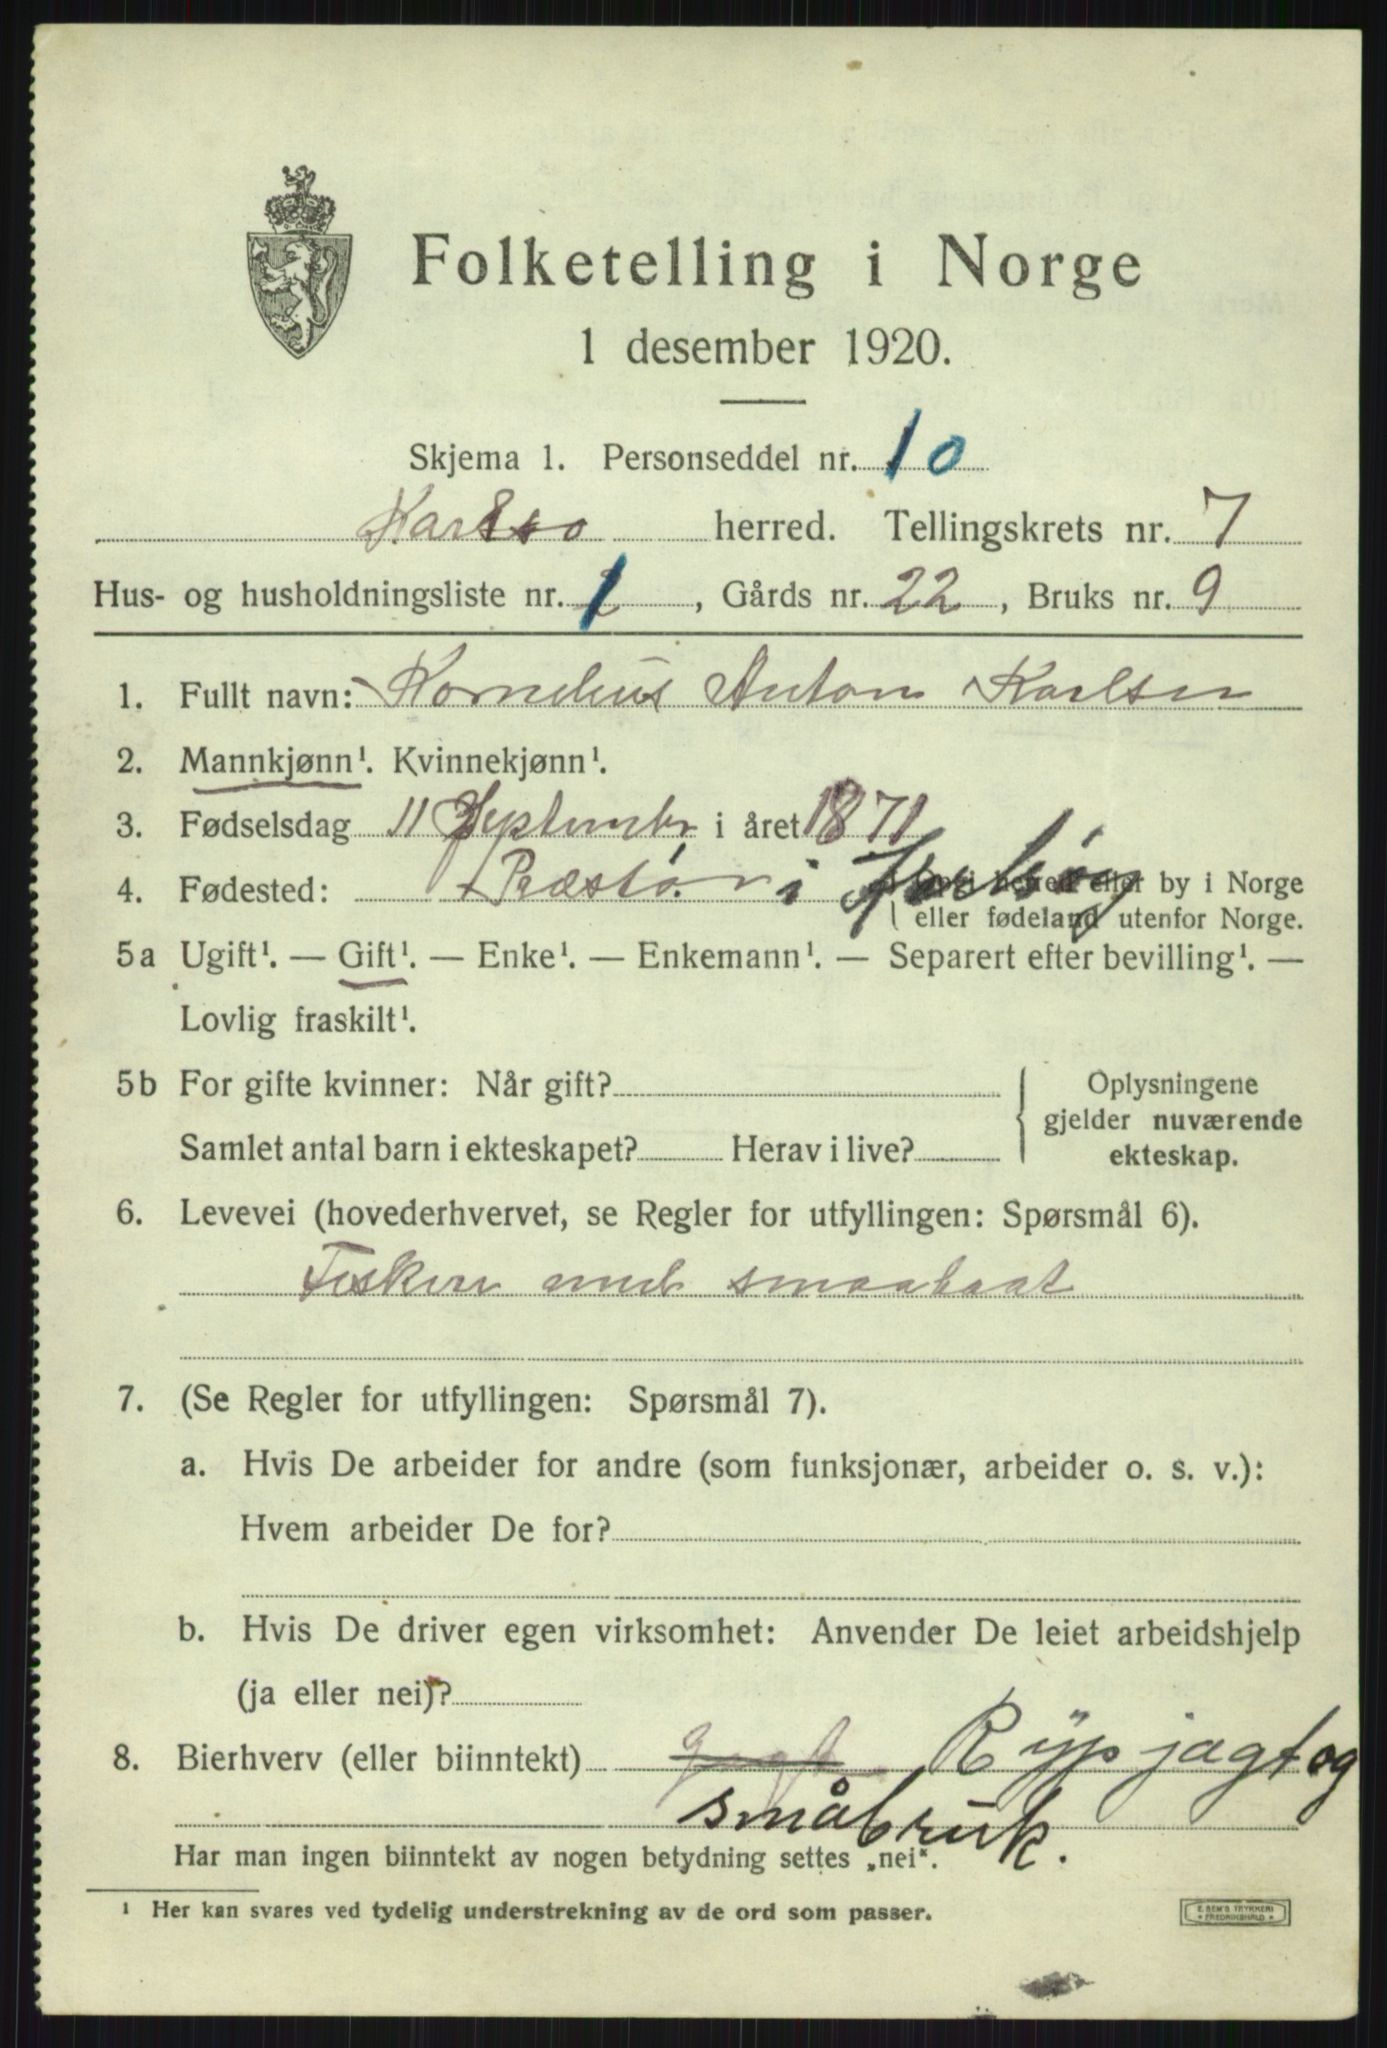 Folketelling i Norge
1 desember 1920.
Skjema 1. Personseddel nr. 10
Karlsø herred. Tellingskrets nr. 7
Hus- og husholdningsliste nr. 1, Gårds nr. 22, Bruks nr. 9
1. Fullt navn: Kornelius Anton Karlsen
2. Mannkjønn¹. Kvinnekjønn¹.
3. Fødselsdag 11 September i året 1871
4. Fødested: Præstø i Karlsøy herred eller by i Norge
eller fødeland utenfor Norge.
5a Ugift¹. — Gift¹. — Enke¹. — Enkemann¹. — Separert efter bevilling¹. —
Lovlig fraskilt¹.
5b For gifte kvinner: Når gift?
Samlet antal barn i ekteskapet? Herav i live?
Oplysningene
gjelder nuværende
ekteskap.
6. Levevei (hovederhvervet, se Regler for utfyllingen: Spørsmål 6).
Fisker med smaabaat
7. (Se Regler for utfyllingen: Spørsmål 7).
a. Hvis De arbeider for andre (som funksjonær, arbeider o. s. v.):
Hvem arbeider De for?
b. Hvis De driver egen virksomhet: Anvender De leiet arbeidshjelp
(ja eller nei)?
8. Bierhverv (eller biinntekt) Rypjagt og
småbruk.
Har man ingen biinntekt av nogen betydning settes „nei".
¹ Her kan svares ved tydelig understrekning av de ord som passer.
E. SEM'S TRYKKERI
FREDRIKSHALD